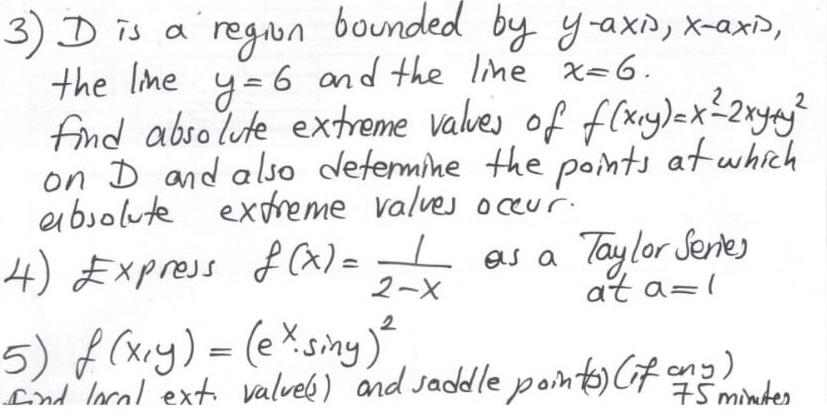 3) D is a region bounded by y-axis, x-axis,
the line y=6 and the line x=6.
find absolute extreme values of f(x,y)=x²-2xy+y²
on D and also determine the points at which
absolute extreme values occur.
4) Express f(x)= 1/(2-x) as a Taylor Series
at a=1
5) f(x,y) = (eˣ.siny)²
find local ext. value(s) and saddle point(s) (if any)
75 minutes